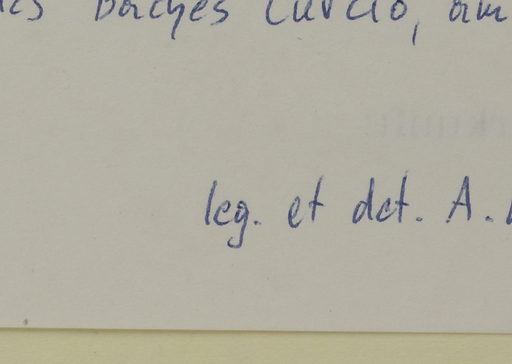 Baches Curcio, am
leg. et det. A.